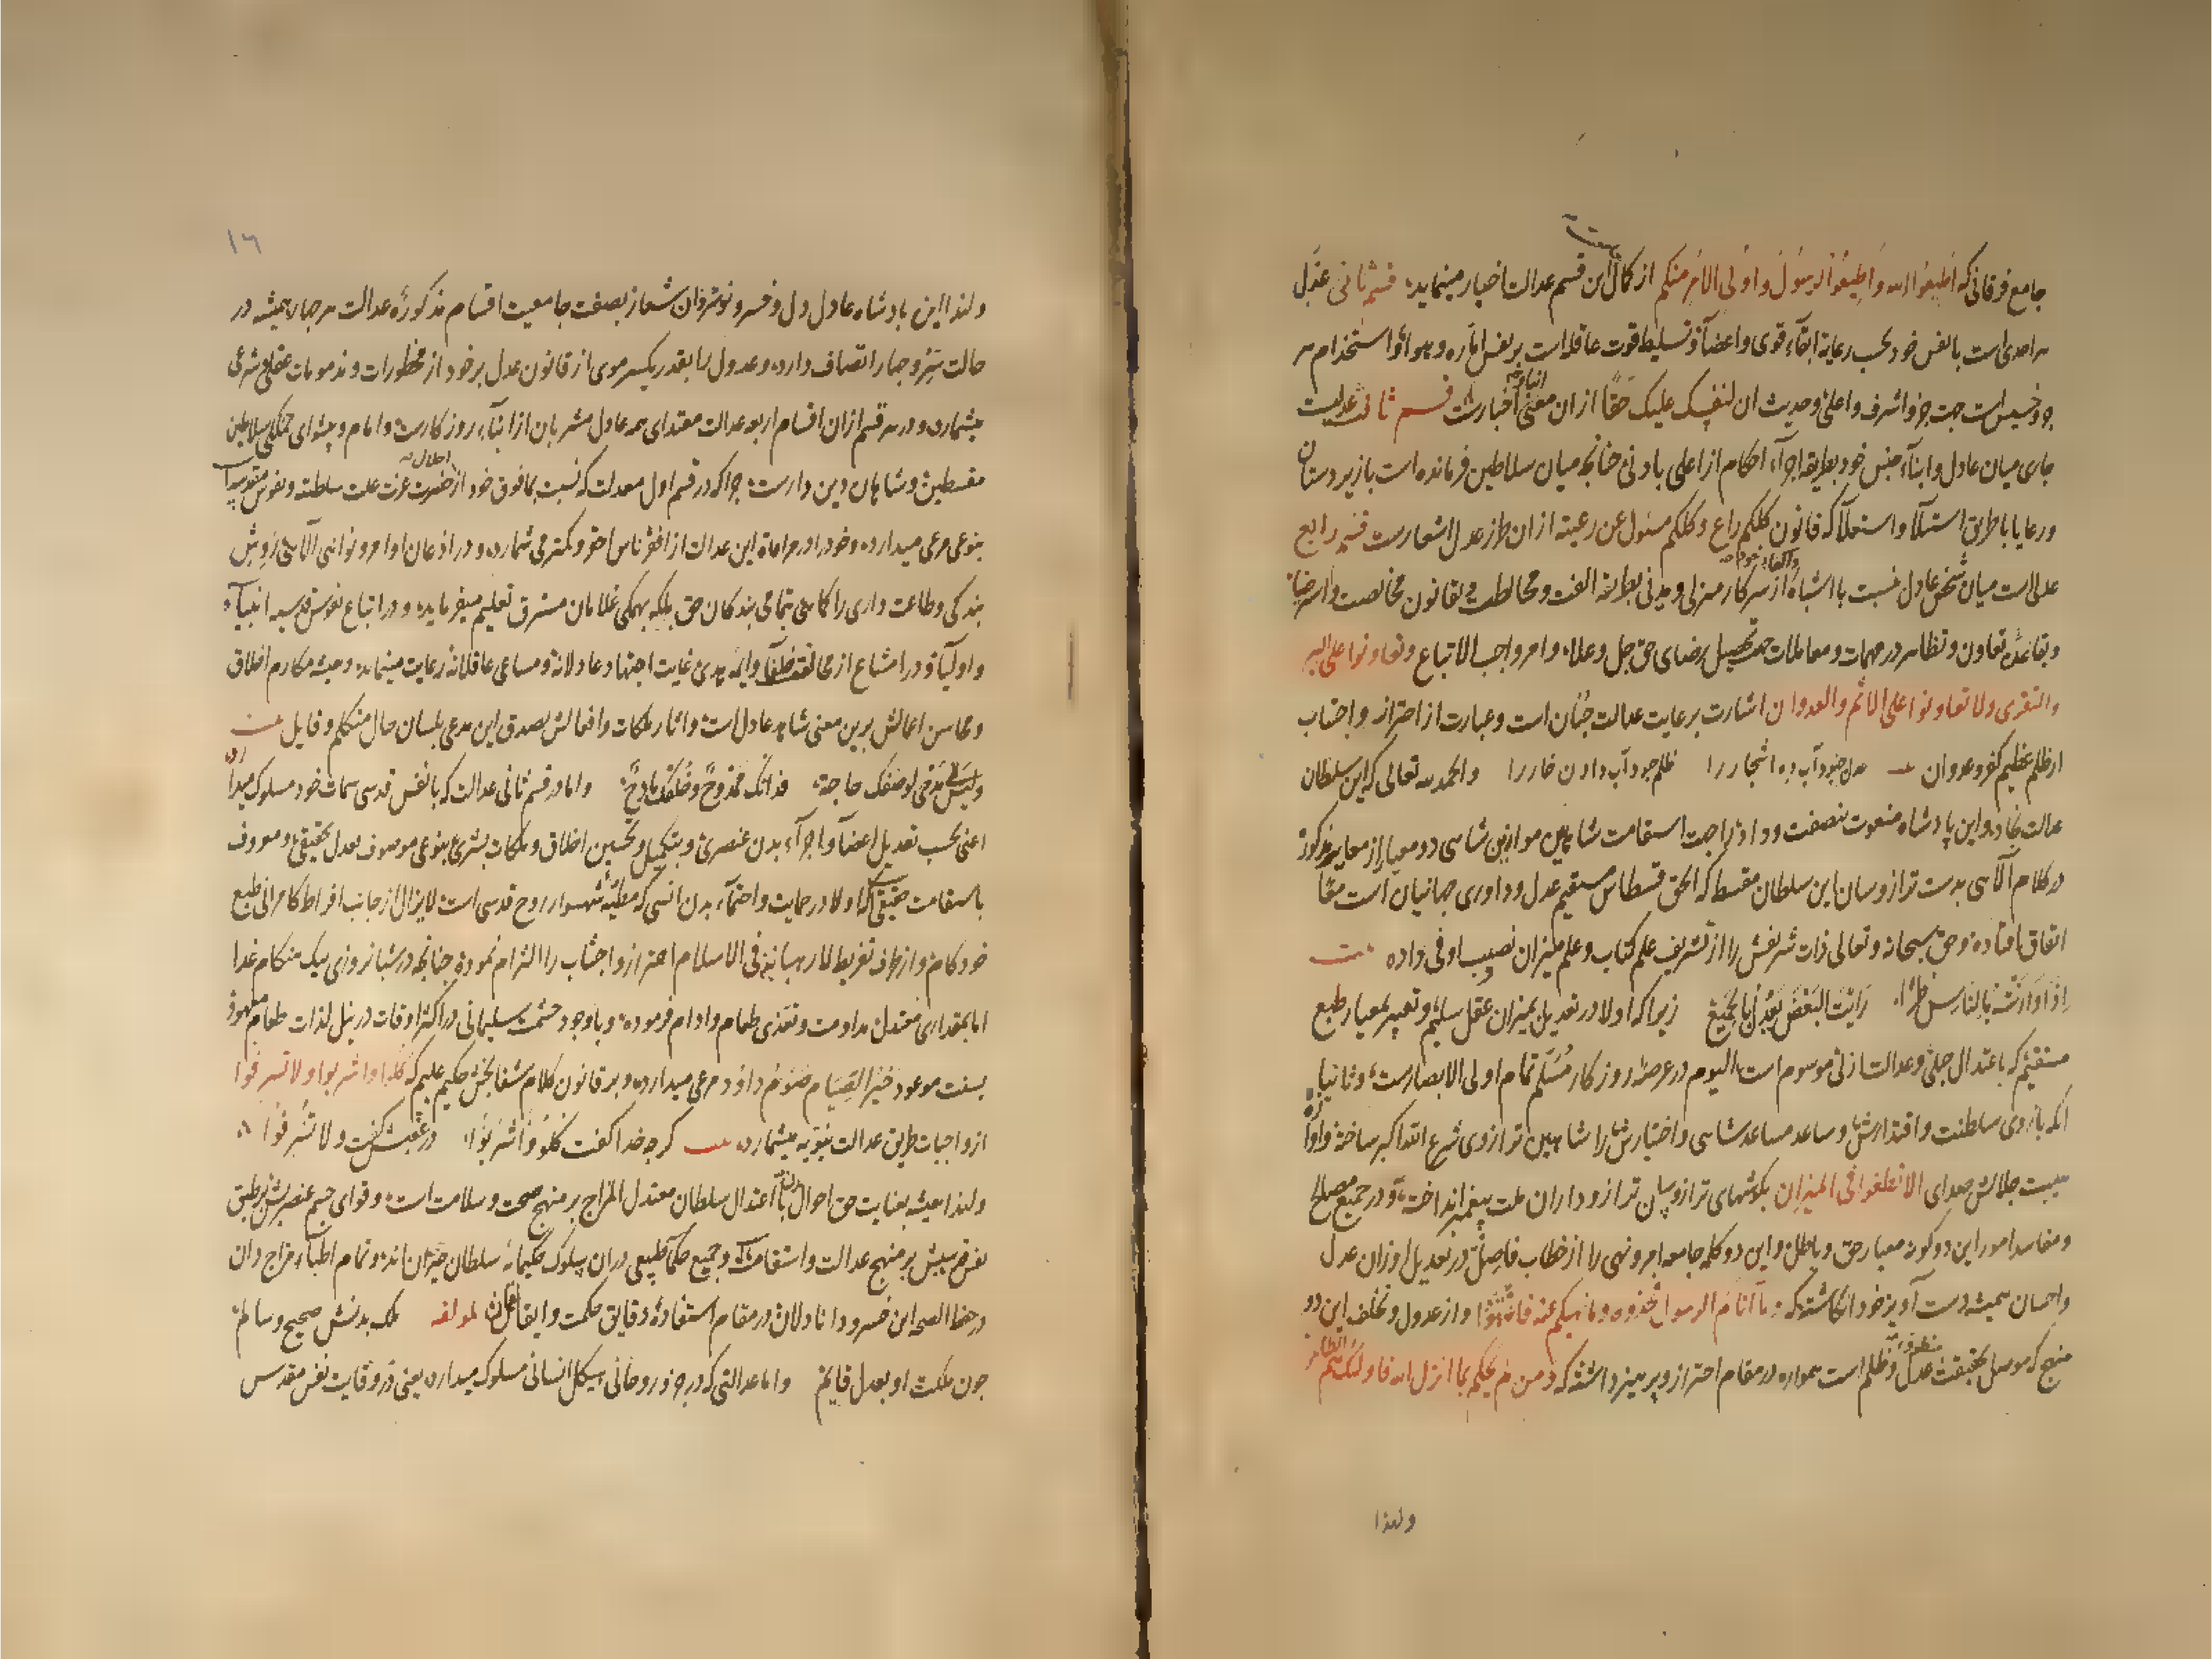 جامع فرقانی که اطیعوا الله و اطیعوا الرسول و اولی الامر منکم از کمال این قسم عدالت اخبار مینماید قسم ثانی عدل
هر احدی است با نفس خود بحسب رعایة ابقاء قوی و اعضا و تسلیط قوت عاقله است بر نفس اماره و هوا و استخدام هر
جزو خسیس است جهت جزو اشرف و اعلی و حدیث ان لنفسک علیک حقا از ان معنی اخبارست قسم ثالث عدلیست
جاری میان عادل و ابناء جنس خود بطریقه اجراء احکام از اعلی بادنی چنانچه میان سلاطین فرمانده است با زیردستان
و رعایا با طریق استیلا و استعلا که قانون کلکم راع و کلکم مسئول عن رعیته از ان طراز عدل اشعارست قسم رابع
عدالت میان شخص عادل نسبت با اشباه از سرکار منزلی و مدنی بواسطه الفت و مخالطت بقانون مخالصت و استرضا
و بقاعده تعاون و تظاهر در مهمات و معاملات جهت تحصیل رضای حق جل و علا و امر واجب الاتباع و تعاونوا علی البر
و التقوی و لا تعاونوا علی الاثم و العدوان اشارت برعایت عدالت چنان است و عبارت از احتراز و اجتناب
از ظلم عظیم کفر و عدوان عدل چبود آب ده اشجار را ظلم چبود آب دادن خار را و الحمد لله تعالی که این سلطان
عدالت نجاد و این پادشاه منعوت بنصفت و داد را جهت استقامت شاهین موازین شناسی دو معیار از معاییر مذکوره
در کلام الاهی بدست ترازو سان این سلطان مقسط که الحق قسطاس مستقیم عدل و داوری جهانیان است
اتفاق افتاده و حق سبحانه و تعالی ذات شریفش را از تشریف علم کتاب و علم میزان نصیب اوفی داده
زیرا که اولا در تعدیل میزان عقل سلیم و تعییر معیار طبع
مستقیم که باعتدال جبلی و عدالت ازلی موسوم است الیوم در عرصه روزکار مسلم تمام اولی الابصارست و ثانیا
انکه بازوی سلطنت و اقتدارش و ساعد مساعد شاسی و اختیارش را شاهین ترازوی شرع الله اکبر ساخته و آوازه
هیبت جلالش صدای الا تطغوا فی المیزان بکوشهای ترازو سان ترازوداران ملت پیغمبر انداخته و در جمیع مصالح
و مفاسد امور این دو کونه معیار حق و باطل و این دو کلمه جامعه امر و نهی را از خطاب فاصل در تعدیل اوزان عدل
و احسان همیشه دست آویز خود انکاشته که و ما آتاکم الرسول فخذوه و ما نهیکم عنه فانتهوا و از عدول و تخلف این دو
منهج که موصل بحقیقت عدل و ظلم است همواره در مقام احتراز و پرهیز داشته که و من لم یحکم بما انزل الله فاولئک هم الظالمون
ولهذا
١٦
ولهذا این پادشاه عادل دل و خسرو نوشروان شعار بصفت جامعیت اقسام مذکوره عدالت هر چهار همیشه در
حالت سر و جهار اتصاف دارد و عدول را بقدر یکسر موی از قانون عدل بر خود از محظورات و مذمومات عقلی و شرعی
میشمارد و در هر قسم از ان اقسام اربعه عدالت مقتدای همه عادل مشربان از ابناء روزکارست و امام و پیشوای جملکی سلاطین
مقسطین و شاهان دین دارست چرا که در قسم اول معدلت که نسبت بمافوق خود از حضرت عزت علت سلطنه و نفوس مقدسه
بنوعی مرعی میدارد و خود را در مراعاة این عدالت از افقر ناس احقر و کمتر می شمارد و در اذعان اوامر و نواهی الاهی روش
بندکی و طاعت داری را کاهی بتمامی بندکان حق بلکه بهمکی غلامان مسترق تعلیم میفرماید و در اتباع نفوس قدسیه انبیا
و اولیا و در امتناع از مخالفت خلفا و ائمه هدی غایت اجتهاد عادلانه و مساعی عاقلانه رعایت مینماید و جمله مکارم اخلاق
و محاسن اعمالش برین معنی شاهد عادل است و اثار ملکات و افعالش بصدق این مدعی بلسان حال متکلم و قایل
و لیس مدحی لوصفک حاجة فذاتک ممدوح و خلقک مادح و اما در قسم ثانی عدالت که با نفس قدسی سمات خود مسلوک میدارد
اعنی بحسب تعدیل اعضا و اجزاء بدن عنصری و بتکمیل و تحسین اخلاق و ملکات بشری بنوعی موصوف بعدل حقیقی و معروف
باستقامت حقیقی که اولا در حمایت و احتماء بدن انسی که مطیه شهسوار روح قدسی است لایزال از جانب افراط کامرانی طبع
خودکام و از طرف تفریط لا رهبانیة فی الاسلام احتراز و اجتناب را التزام نموده چنانچه در شبانروزی بیک هنکام غذا
اما بمقداری معتدل مداومت و تغذی طعام و ادام فرموده و با وجود حشمت سلیمانی در اکثر اوقات در نیل لذات طعام معهود
بسنت موعود خیر الصیام صوم داود مرعی میدارد و بر قانون کلام شفا بخش حکیم علیم که کلوا و اشربوا و لا تسرفوا
از واجبات طریق عدالت نبویه میشمارد کرچه خدا کفت کلوا و اشربوا در عقبش کفت و لا تسرفوا
ولهذا همیشه بعنایت حق احوال با اعتدال سلطان معتدل المزاج بر منهج صحت و سلامت است و قوای جسم عنصریش بر طبق
نفس نفیسش بر منهج عدالت و استقامت و جمیع حکماء طبیعی در ان سلوک حکیمانه سلطان حیران اند و تمام اطباء مزاج دان
در حفظ الصحه این خسرو دانا دلان در مقام استفاده دقایق حکمت و ایقان لمولفه ملک بدنش صحیح و سالم
چون ملکت او بعدل قایم و اما عدالتی که در جزو روحانی هیکل انسانی مسلوک میدارد یعنی در وقایت نفس مقدس